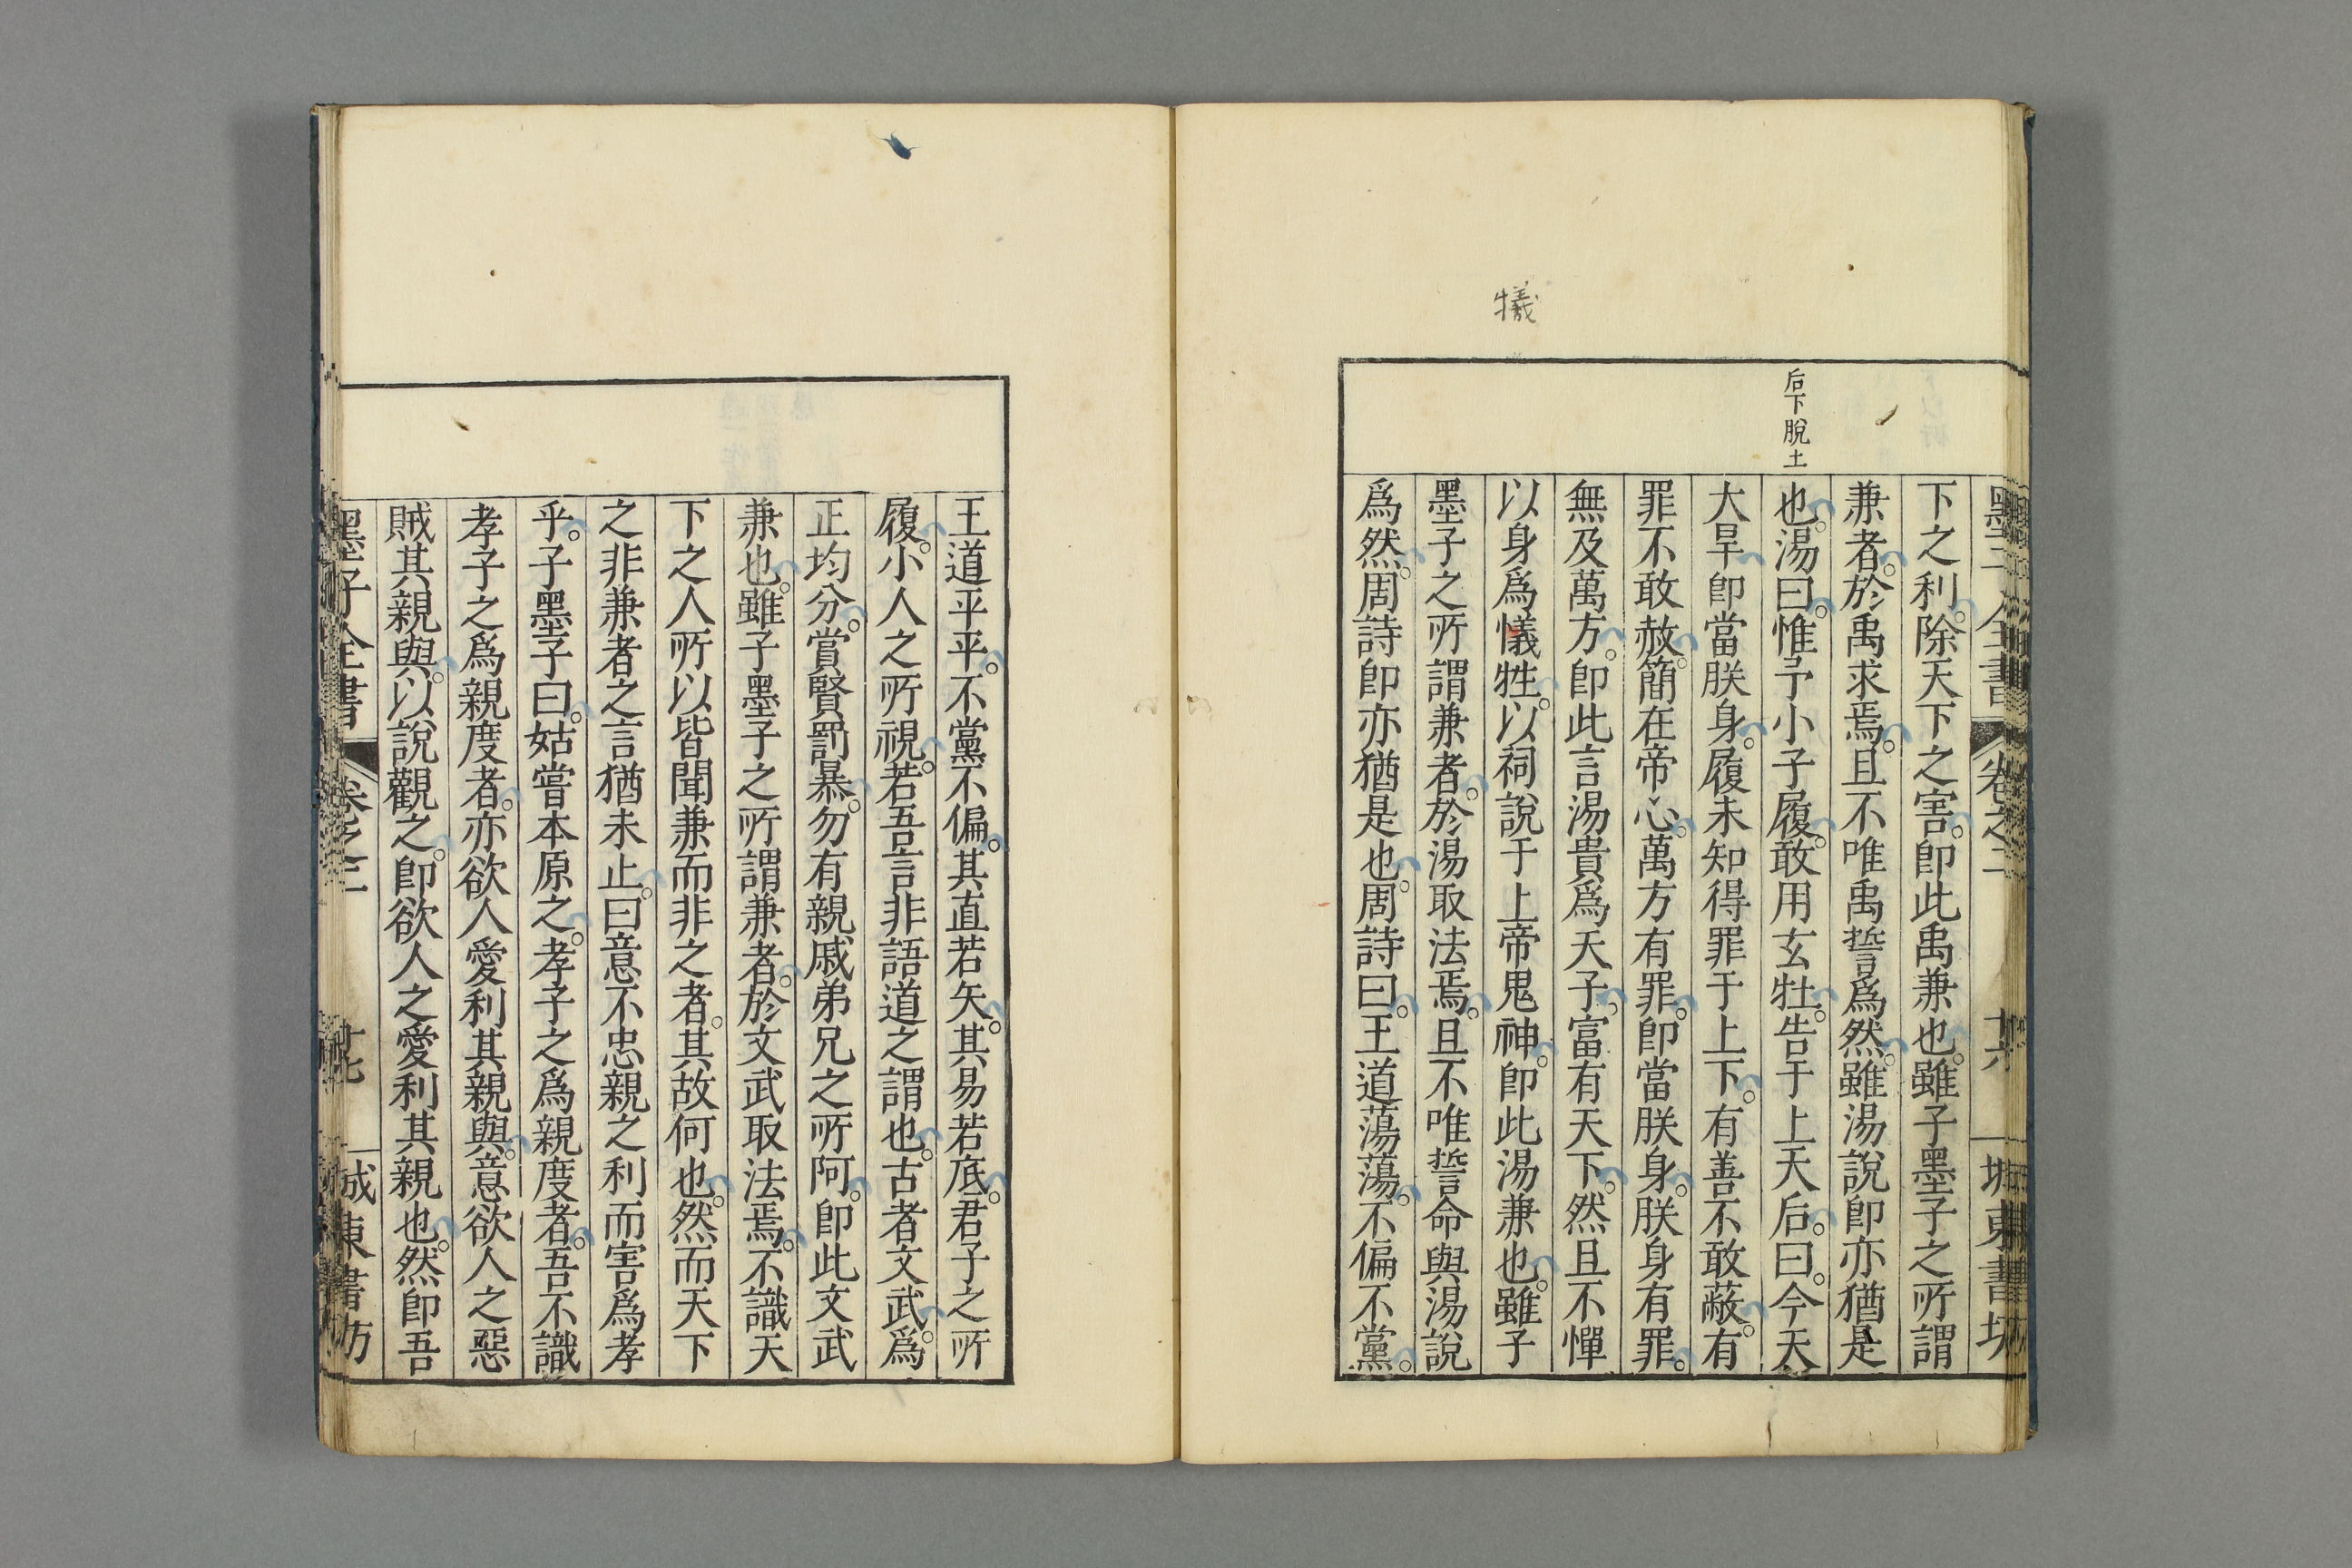 犠
后下脫土
下之利。除天下之害。卽此禹兼也。雖子墨子之所謂
兼者。於禹求焉。且不唯禹誓爲然。雖湯說卽亦猶是
也。湯曰。惟予小子履。敢用玄牡。告于上天后。曰。今天
大旱。卽當朕身。履未知得罪于上下。有善不敢蔽。有
罪不敢赦。簡在帝心。萬方有罪。卽當朕身。朕身有罪。
無及萬方。卽此言湯貴爲天子。富有天下。然且不憚
以身爲犠牲。以祠說于上帝鬼神。卽此湯兼也。雖子
墨子之所謂兼者。於湯取法焉。且不唯誓命與湯說
爲然。周詩卽亦猶是也。周詩曰。王道蕩蕩。不偏不黨。
王道平平。不黨不偏。其直若矢。其易若底。君子之所
履。小人之所視。若吾言非語道之謂也。古者文武。爲
正均分。賞賢罰暴。勿有親戚弟兄之所阿。卽此文武
兼也。雖子墨子之所謂兼者。於文武取法焉。不識天
下之人所以皆聞兼而非之者。其故何也。然而天下
之非兼者之言猶未止。曰意不忠親之利而害爲孝
乎。子墨子曰。姑嘗本原之。孝子之爲親度者。吾不識
孝子之爲親度者。亦欲人愛利其親與。意欲人之惡
賊其親與。以說觀之。卽欲人之愛利其親也。然卽吾
墨子全書 卷之三 廿七 城東書坊